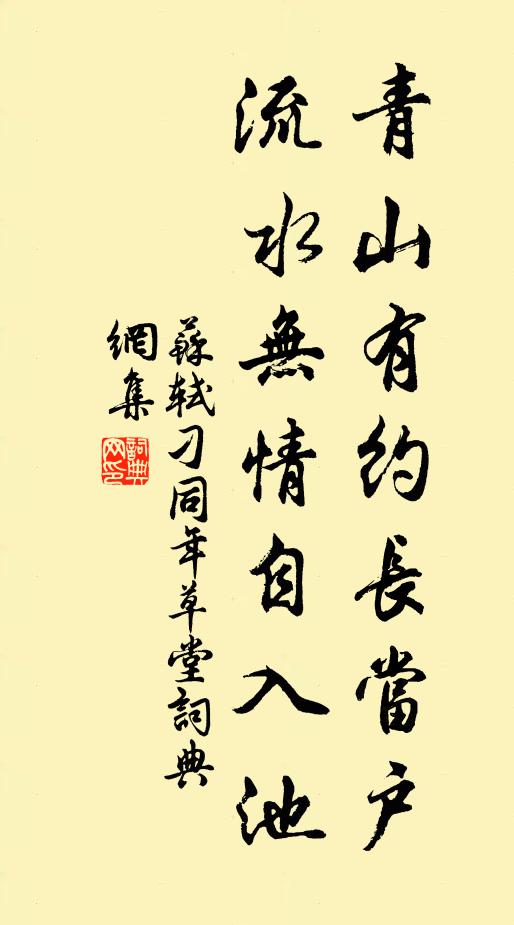 青山有約長當户
流水無情自入池
蘇軾刁同年草堂詞典
網集
詞典
网印